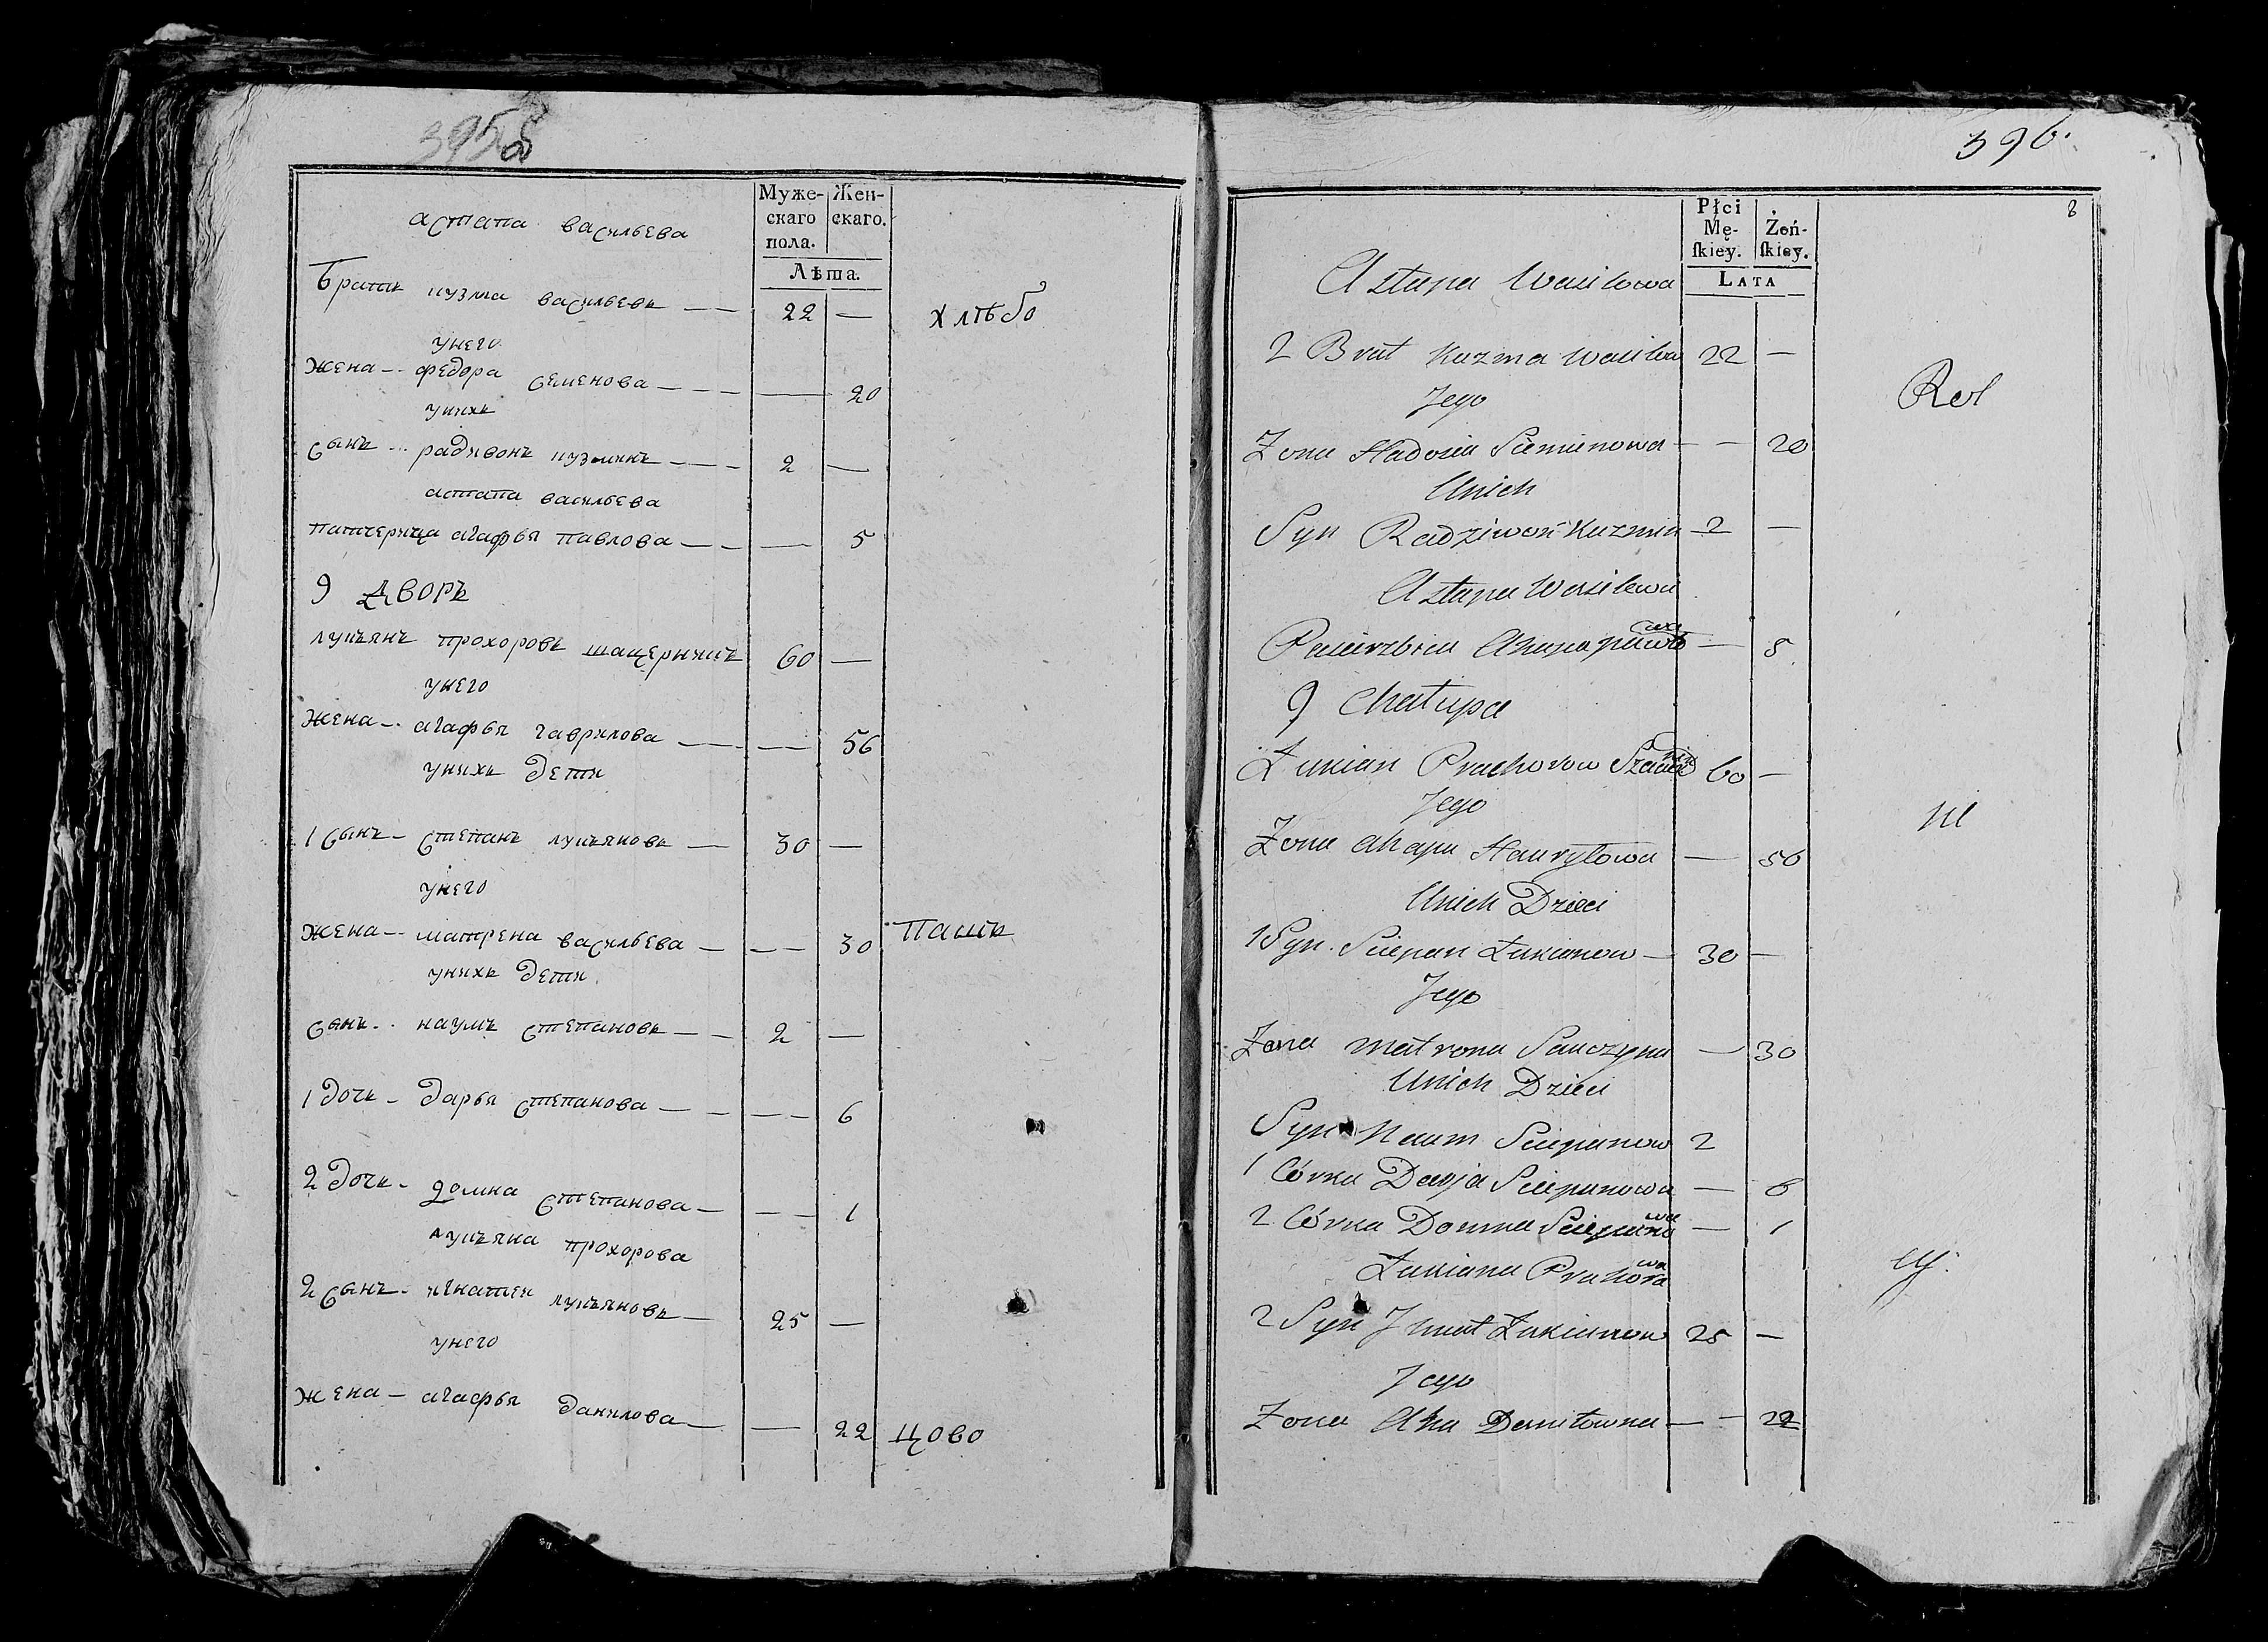 395
Муже-
скаго
пола.
Жен-
скаго.
Лѣта.
астапа васильева
братъ кузма васильевъ 22 —
хлѣбо
унего
жена федора семенова — 20
унихъ
сынъ радивонъ кузминъ 2 —
астапа васильева
патчерица агафья павлова — 5
9 дворъ
лукъянъ прохоровъ 60 —
унего
жена агафья гаврилова — 56
унихъ дети
1 сынъ степанъ лукъяновъ 30 —
унего
жена матрена васильева — 30
пашъ
унихъ дети
сынъ наумъ степановъ 2 —
1 дочь дарья степанова — 6
2 дочь домна степанова — 1
лукъяна прохорова
2 сынъ игнатей лукъяновъ 25 —
унего
жена агафья данилова — 22
цово
396.
8
Płci
Mę-
skiey.
Żeń-
skiey.
LATA
Astapa Wasilewa
2 Brat Kuzma Wasilew 22 —
Jego
Rol
Żona Hadosia Siemienowa — 20
Unich
Syn Radziwon Kuzmin 2 —
Astapa Wasilewa
Ahapa Pawłowa — 5
9 Chatupa
Łukian Prachorow 60 —
Jego
ni
Żona Ahapa Hauryłowa — 56
Unich Dzieci
1 Syn Sciepan Łukianow 30 —
Jego
Żona Matrona — 30
Unich Dzieci
Syn Naum Sciepanow 2
1 Córka Darja Sciepanowa — 6
2 Córka Domna Sciepanowa — 1
Łukiana Prahorawa
cy.
2 Syn Ihnat Łukianow 25 —
Jego
Żona Aha Daniłowna — 22